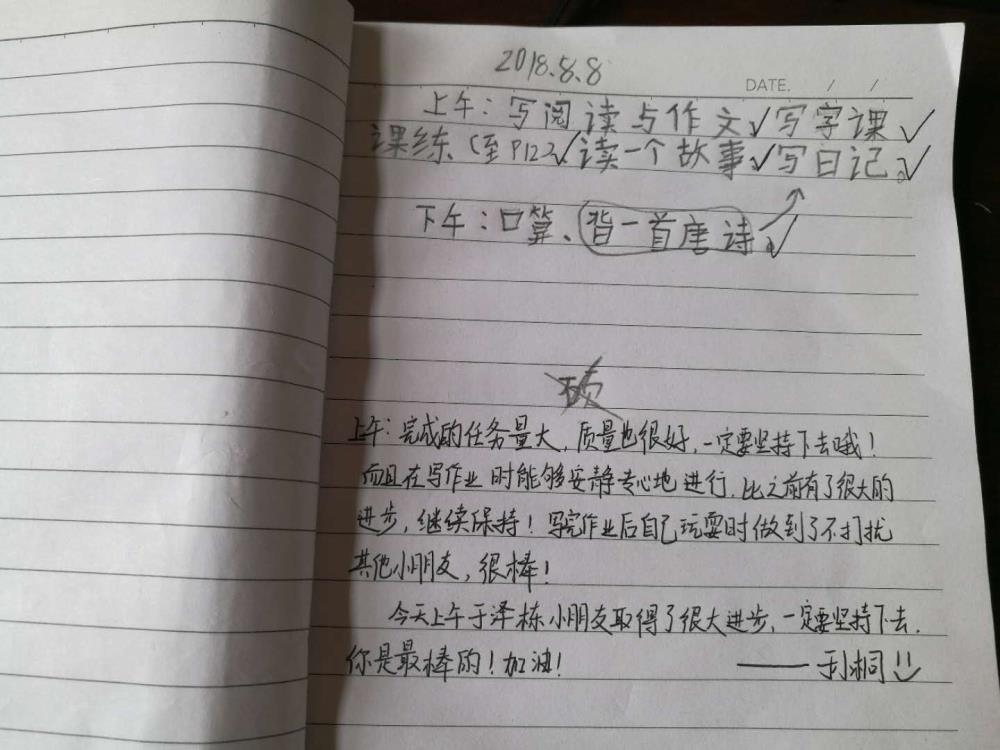 2018.8.8
DATE. / /
上午：写阅读与作文✓写字课✓
课练（至P122✓读一个故事✓写日记。✓
下午：口算、背一首唐诗。✓
上午：完成的任务量大，质量也很好，一定要坚持下去哦！
而且在写作业时能够安静专心地进行，比之前有了很大的
进步，继续保持！写完作业后自己玩耍时做到了不打扰
其他小朋友，很棒！
今天上午于泽栋小朋友取得了很大进步，一定要坚持下去，
你是最棒的！加油！ ——于桐